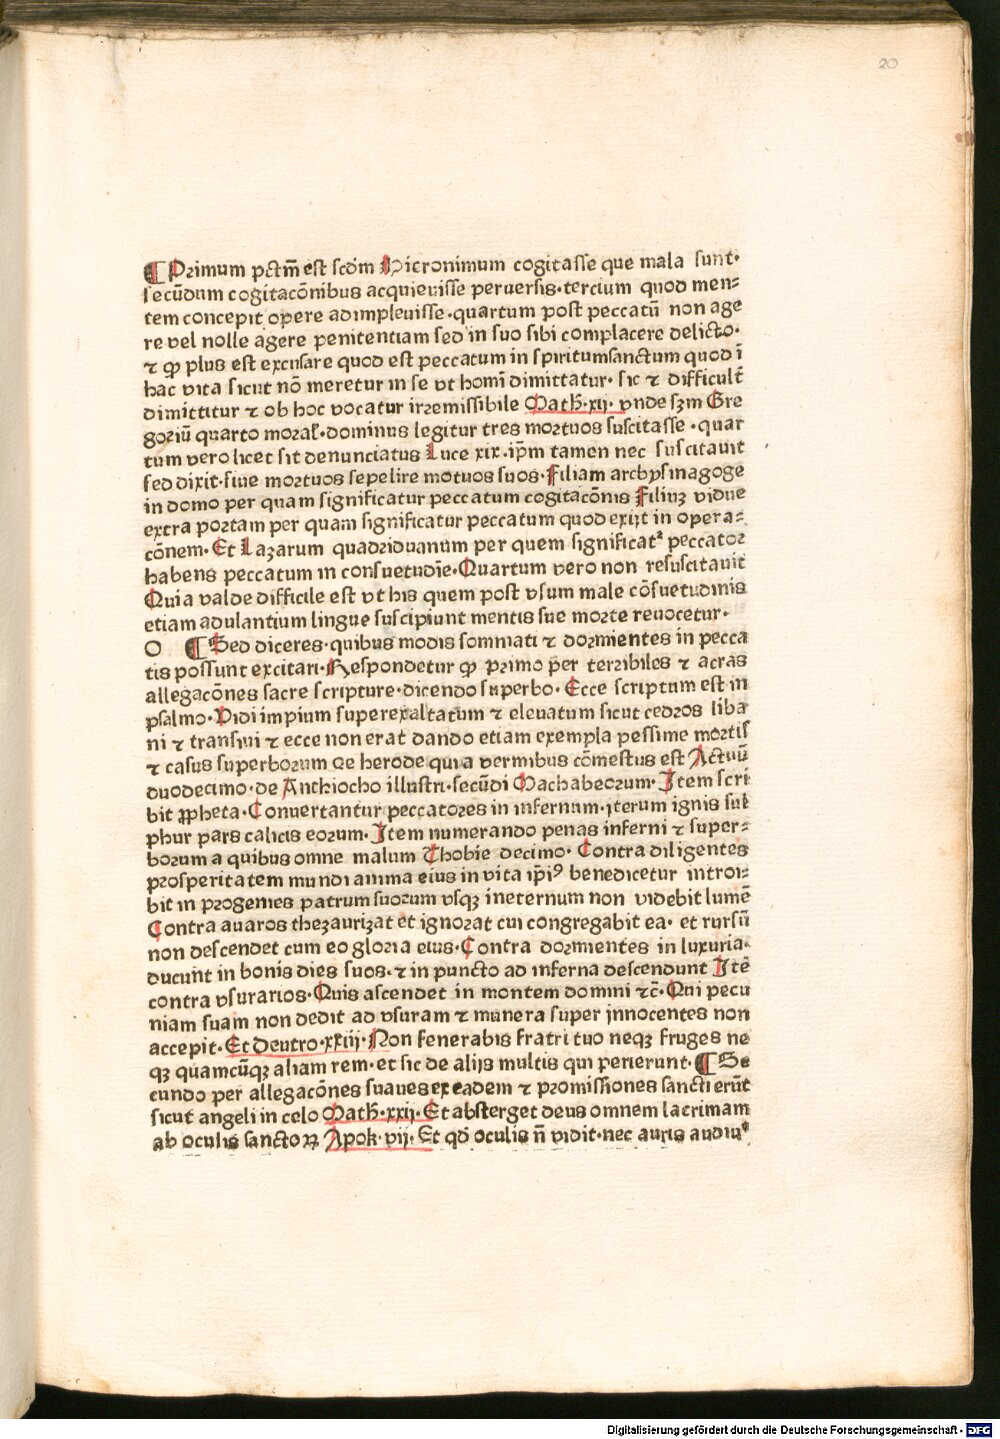 20
¶ Primum pctm̄ est scdm Hieronimum cogitasse que mala sunt·
secūdum cogitacōnibus acquieuisse peruersis·tercium quod men⸗
tem concepit opere adimpleuisse·quartum post peccatū non age
re vel nolle agere penitentiam sed in suo sibi complacere delicto·
⁊ ꝙ plus est excusare quod est peccatum in spiritumsanctum quod ī
hac vita sicut nō meretur in se vt homī dimittatur· sic ⁊ difficult̄
dimittitur ⁊ ob hoc vocatur irremissibile Math̄·xij· vnde sꝫm Gre
goriū quarto moral̄·dominus legitur tres mortuos suscitasse·quar
tum vero licet sit denunciatus Luce xix·ip̄m tamen nec suscitauit
sed dixit·sine mortuos sepelire motuos suos·Filiam archysinagoge
in domo per quam significatur peccatum cogitacōnis Filiuꝫ vidue
extra portam per quam significatur peccatum quod exijt in opera⸗
cōnem·Et Lazarum quadriduanum per quem significatᷣ peccator
habens peccatum in consuetudīe·Quartum vero non resuscitauit
Quia valde difficile est vt his quem post vsum male cōsuetudinis
etiam adulantium lingue suscipiunt mentis sue morte reuocetur·
O ¶ Sed diceres·quibus modis somniati ⁊ dormientes in pecca
tis possunt excitari·Respondetur ꝙ primo per terribiles ⁊ acras
allegacōnes sacre scripture·dicendo superbo·Ecce scriptum est in
psalmo·Vidi impium superexaltatum ⁊ eleuatum sicut cedros liba
ni ⁊ transiui ⁊ ecce non erat dando etiam exempla pessime mortis
⁊ casus superborum De herode quia vermibus cōmestus est Actuū
duodecimo·de Anthiocho illustri·secūdi Machabeorum·Item scri
bit ꝓpheta·Conuertantur peccatores in infernum·iterum ignis sul
phur pars calicis eorum·Item numerando penas inferni ⁊ super⸗
borum a quibus omne malum Thobie decimo·Contra diligentes
prosperitatem mundi anima eius in vita ip̄iꝰ benedicetur introi⸗
bit in progenies patrum suorum vsqꝫ ineternum non videbit lumē
Contra auaros thezaurizat et ignorat cui congregabit ea· et rursū
non descendet cum eo gloria eius·Contra dormientes in luxuria·
ducunt in bonis dies suos·⁊ in puncto ad inferna descendunt Itē
contra vsurarios·Quis ascendet in montem domini ⁊c̄·Qui pecu
niam suam non dedit ad vsuram ⁊ munera super innocentes non
accepit·Et Deutro·xxiij·Non fenerabis fratri tuo neqꝫ fruges ne
qꝫ quamcūqꝫ aliam rem·et sic de alijs multis qui perierunt·¶ Se
cundo per allegacōnes suaues ex eadem ⁊ promissiones sancti erūt
sicut angeli in celo Math̄·xxij·Et absterget deus omnem lacrimam
ab oculis sanctoꝝ Apok·vij·Et qd̄ oculis n̄ vidit·nec auris audiuᷣ
Digitalisierung gefördert durch die Deutsche Forschungsgemeinschaft - DFG